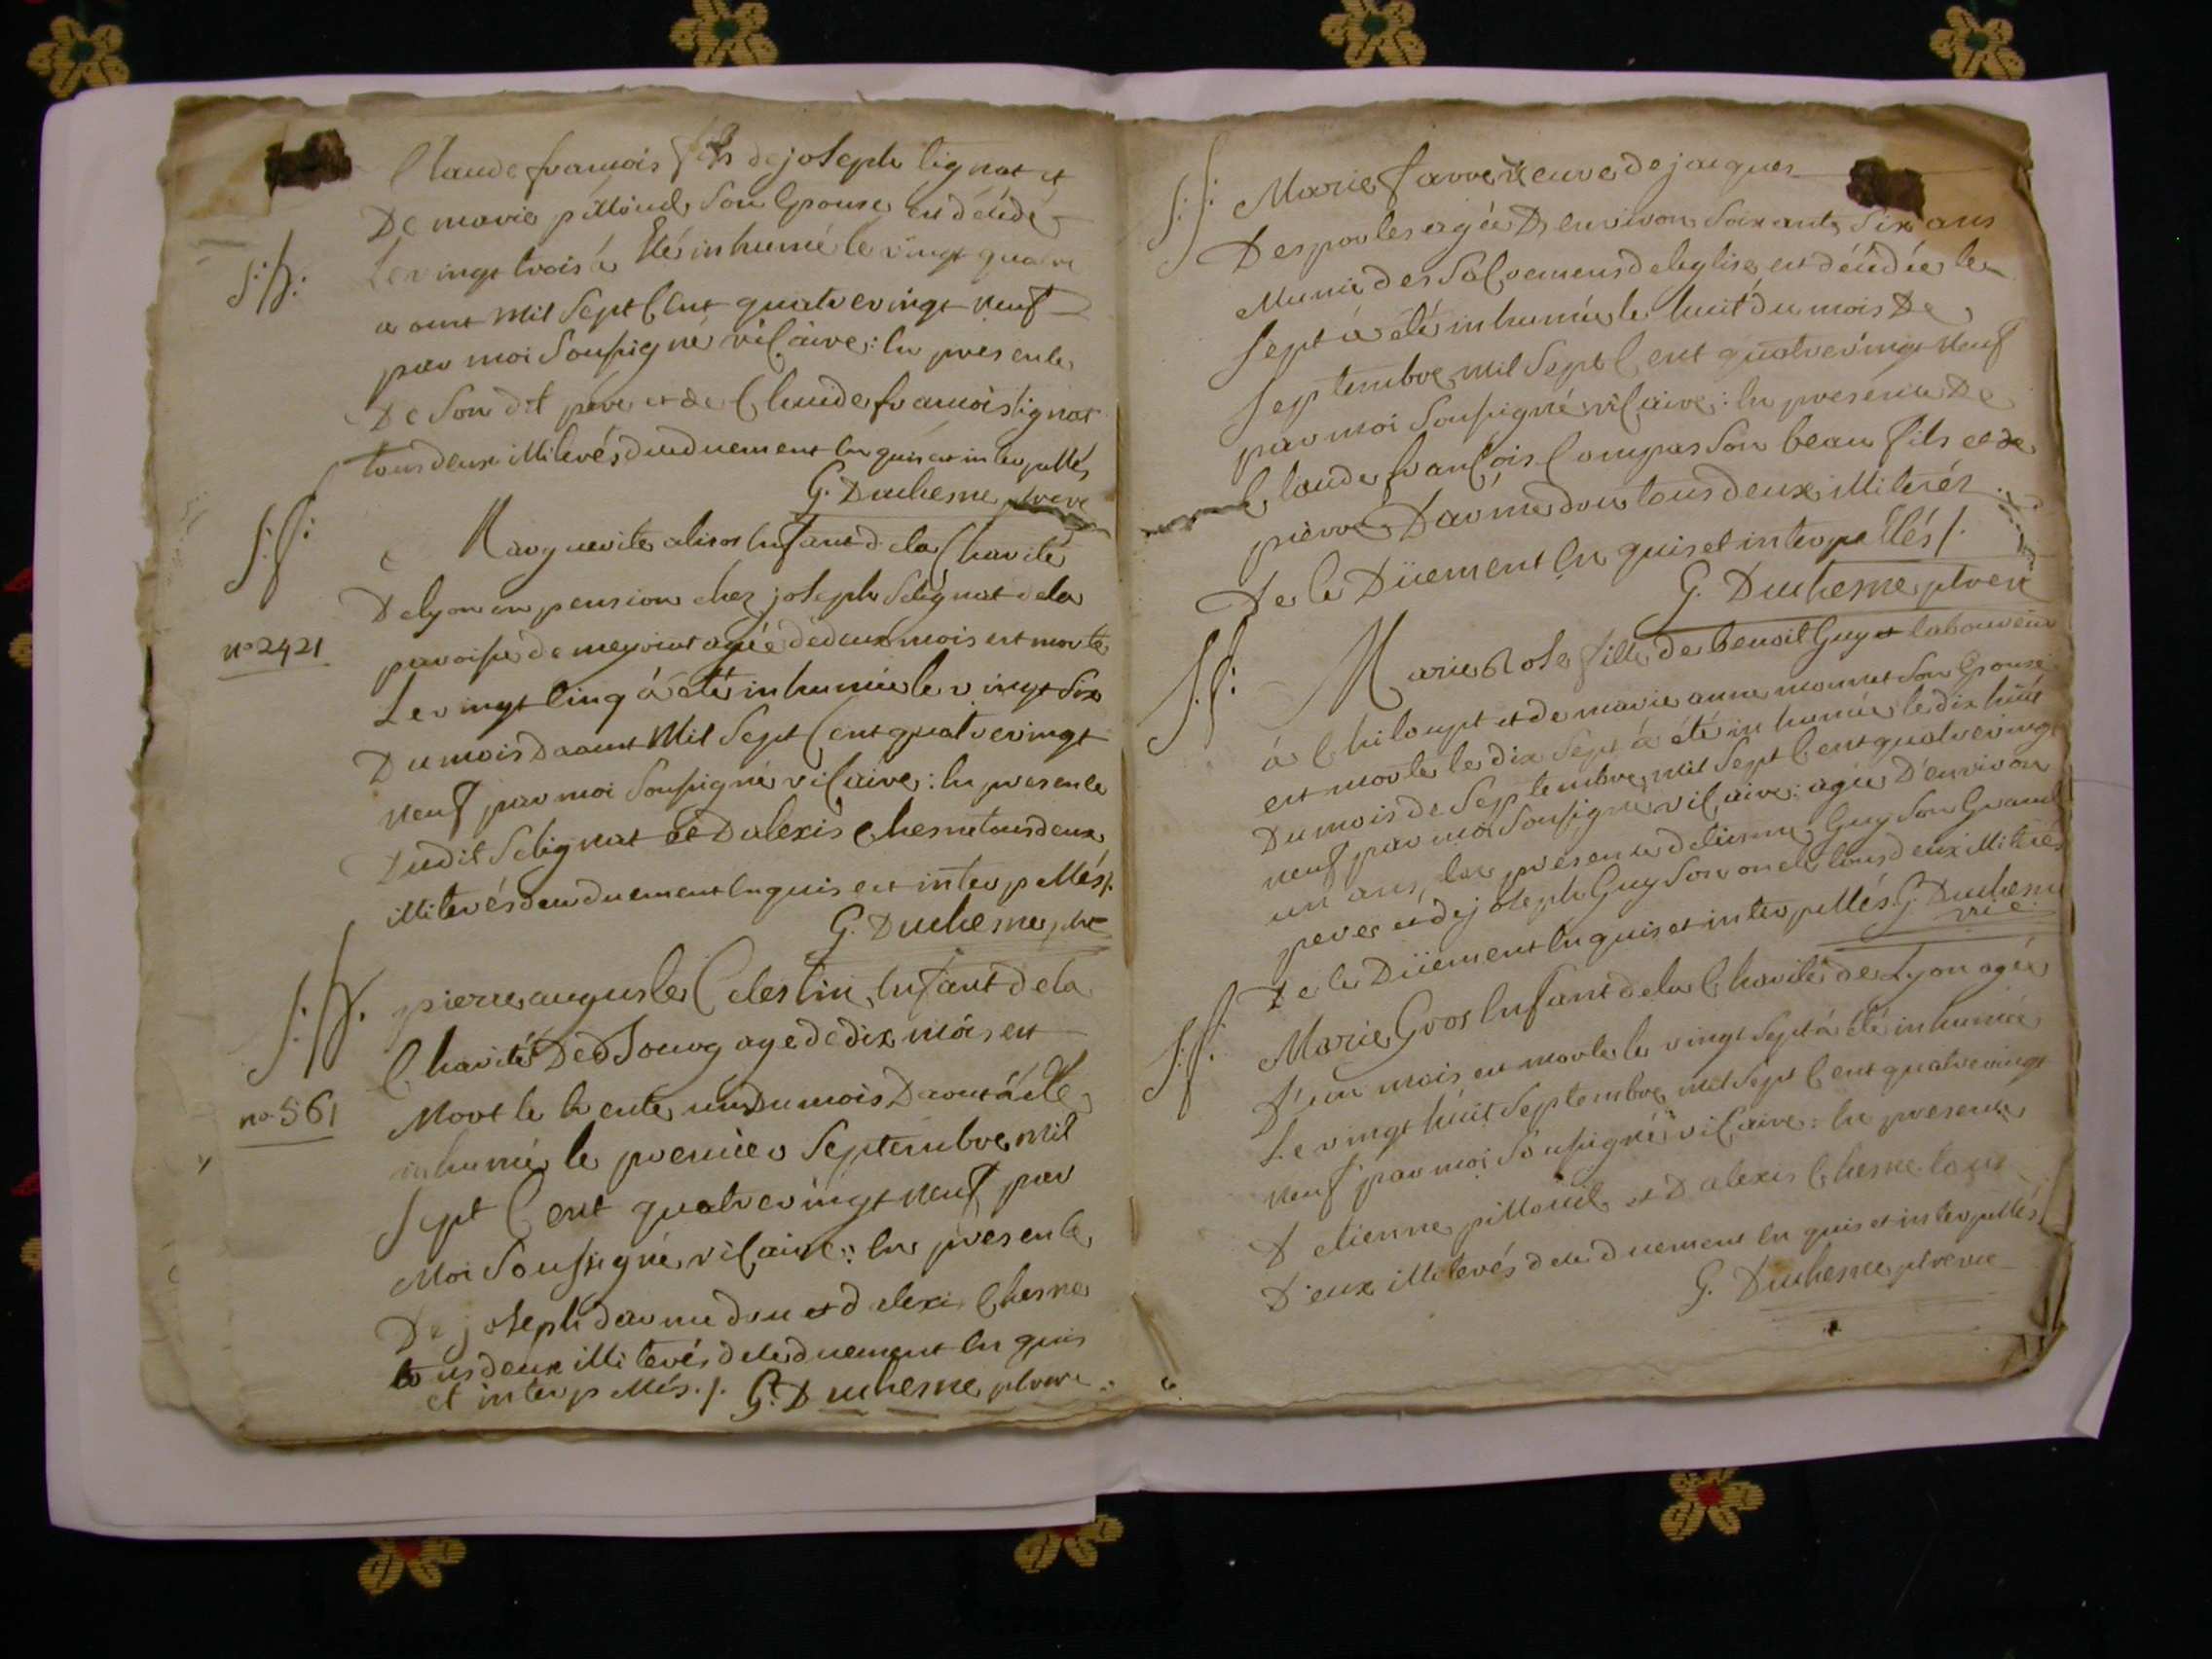 Claude francois fils de joseph lignat et
De marie pittiond Son Epouse est décédé
S:H:
Le vingt trois á Eté inhumé le vingt quatre
aoust Mil Sept Cent quatrevingt Neuf
par moi Soussigné viCaire: En presence
De Son dit pere et de Claude francois lignat
tous deux illiterés duduement Enquis et interpellés
G. Duchesne ptreve
S:f:
Marguerite alisos Enfant de la Charité
Delyon en pension chez joseph Selignat de la
n° 2421
paroisse de meyriat agée dedeux mois est morte
Le vingt Cinq á eté inhumée le vingt Six
Dumois daoust Mil Sept Cent quatrevingt
Neuf par moi Soussigné viCaire: En presence
Dudit Selignat et Dalexis Chesne tous deux
illiterés deu duement Enquis et interpellés/.
G. Duchesne, ptre
S:H.
pierre auguste Celestin, Enfant de la
Charité DedBourg agé de dix mois est
n° 561
Mort le trente un Dumois Daoust á eté
inhumé le premier Septembre Mil
Sept Cent quatrevingt Neuf par
Moi Soussigné, viCaire: En presence
De joseph darmedon et d alexis Chesne
tousdeux illiterés dele duement En quis
et interpellés./. G. Duchesne ptreve
S:f:
Marie favre veuve de jacques
Desportes agée D environ Soixante Six ans
Munie des SaCremens de leglise est décédée le
Sept á été inhumée le huit du mois De
Septembre Mil Sept Cent quatrevingt Neuf
par moi Soussigné viCaire: En presence De
Claude franCois Compas Son beau fils et de
pierre Darmedon tous deux illiterés
De le Düement En quis et interpellés/.
G. Duchesne ptreve
S.f:
Marie Rose fille de benoit Guy et laboureur
á Chiloupt et de marie anne monnet Son Epouse
est morte le dix Sept á été inhumée le dix huit
Du mois de Septembre Mil Sept Cent quatrevingt
neuf par moi Soussigné viCaire: agée D'environ
un ans, En presence detienne Guy Son Grand
pere et de joseph Guy Son oncle tous deux illiterés
De le Düement Enquis et interpellés. G. Duchesne
vre
S:f:
Marie Gros Enfant de la Charité de Lyon agée
D'un mois est morte le vingt Sept á été inhumée
Le vingt huit Septembre Mil Sept Cent quatrevingt
Neuf par moi Soussigné viCaire: En presence
D etienne pittiond et D alexis Chesne tous
D'eux illiterés de le duement En quis et interpellés/.
G. Duchesne ptreve